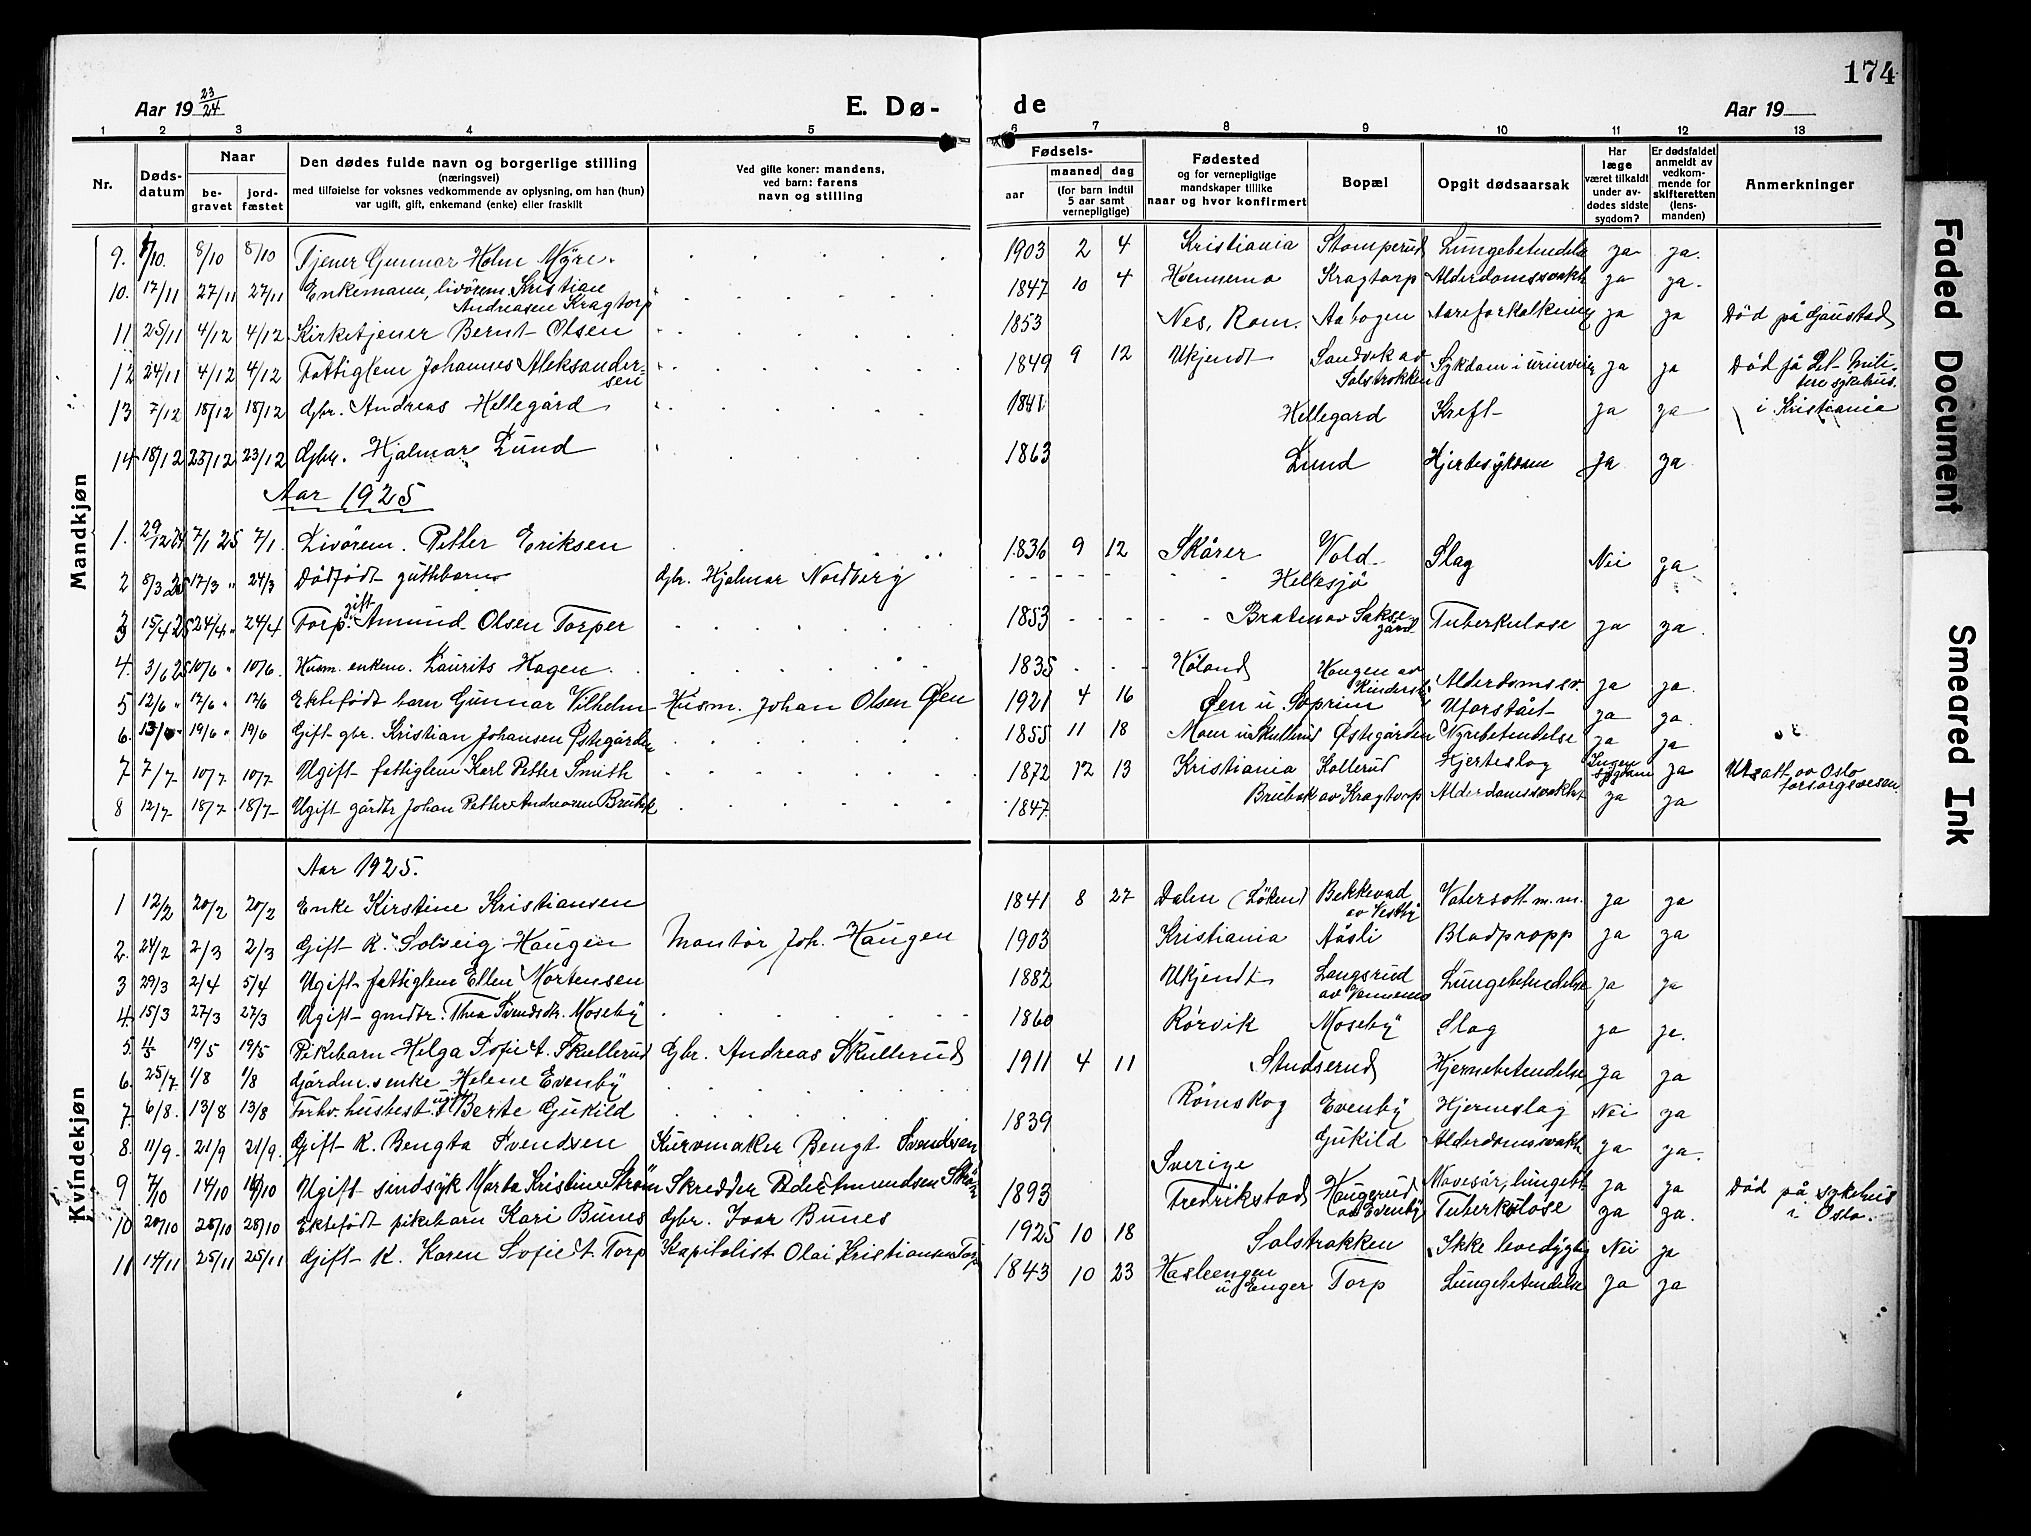 174
Aar 19 23/24
E. Dø-
de
Aar 19
1 2 3 4 5 6 7 8 9 10 11 12 13
Nr.
Døds-
datum
Naar
be-
gravet
jord-
fæstet
Den dødes fulde navn og borgerlige stilling
(næringsvei)
med tilføielse for voksnes vedkommende av oplysning, om han (hun)
var ugift, gift, enkemand (enke) eller fraskilt
Ved gifte koner: mandens,
ved barn: farens
navn og stilling
Fødsels-
aar
maaned dag
(for barn indtil
5 aar samt
vernepligtige)
Fødested
og for vernepligtige
mandskaper tillike
naar og hvor konfirmert
Bopæl
Opgit dødsaarsak
Har
læge
været tilkaldt
under av-
dødes sidste
sygdom?
Er dødsfaldet
anmeldt av
vedkom-
mende for
skifteretten
(lens-
manden)
Anmerkninger
Mandkjøn
9. /10. 8/10 8/10 Tjener Gunnar Holm Myre. 1903 2 4 Kristiania Stomperud Lungebetendelse ja ja.
10. 17/11 27/11 27/11 Enkemann, livörem. Kristian
Andreasen Kragtorp 1847 10 4 Hemnemo Kragtorp Alderdomssvakh. ja ja.
11 25/11 4/12 4/12 Kirketjener Bernt Olsen 1853 Nes, Rom. Aabogen Aareforkalkning ja ja Död på Gaustad
12 24/11 4/12 4/12 Fattiglem Johannes Aleksander-
sen 1849 9 12 Ukjendt Sandvik av
Solstrokken Sykdom i urinvei ja ja Död på det mili-
tære sykehus
i Kristiania
13 7/12 18/12 18/12 Gbr. Andreas Hellegård 1841 Hellegard Kreft ja ja
14 18/12 23/12 23/12 Gbr. Hjalmar Lund 1863 Lund Hjertesykdom ja ja
Aar 1925
1. 29/12 24 7/1 25 7/1. Livörem. Petter Eriksen 1836 9 12 Skårer Vold Slag Nei ja
2 8/3 25 17/3 " 24/3 Dödfödt guttebarn Gbr. Hjalmar Nordberg Hellesjö
3 15/4 25 24/4 " 24/4 Torp. gift Amund Olsen Torper 1853 Braten av Sakse-
gård Tuberkulose ja ja.
4. 3/6 25 10/6 " 10/6. Husm. enkem. Laurits Hagen 1835 Höland Haugen av
Alderdomssv. ja ja.
5 12/6 " 17/6 " 17/6 Ektefödt barn Gunnar Vilhelm Husm. Johan Olsen Øen 1921 4 16 Øen u. Soprim Uforståit ja ja.
6. 13/6 " 19/6 " 19/6 Gift gbr. Kristian Johansen Østegården 1855 11 18 Moen u Skullerud Østegården Nyrebetendelse ja ja
7 7/7 10/7 10/7 Ugift fattiglem Karl Petter Smith 1872 12 13 Kristiania Kollerud Hjerteslag Ingen
sygdom ja Utsatt av Oslo
forsorgsvesen.
8 12/7 18/7 18/7 Ugift gårdbr Johan Petter Andreasen Brubak 1847 Brubak av Kragtorp Alderdomssvakhet ja ja
Kvindekjøn
Aar 1925.
1 12/2 20/2 20/2 Enke Kirstine Kristiansen 1841 8 27 Dalen (Löken) Bekkevad
av Vestby Vatersott m.m. ja ja
2. 24/2 2/3 2/3 Gift K. Solveig Haugen Montör Joh. Haugen 1903 Kristiania Aåsli Blodpropp ja ja
3 29/3 2/4 5/4 Ugift fattiglem Ellen Mortensen 1882 Ukjendt Langsrud
av Lungebetendelse ja ja
4. 15/3 27/3 27/3 Ugift gmdtr. Thea Svendsdtr. Moseby 1860 Rörvik Moseby Slag ja ja.
5. 11/5 19/5 19/5 Pikebarn Helga Sofie A. Skullerud Gbr. Andreas Skullerud 1911 4 11 Studserud Hjernebetendelse ja ja
6. 25/7 1/8 1/8 Gårdm.senke Helene Evenby Römskog Evenby Hjerneslag Nei ja
7. 6/8. 13/8 13/8 Forhv. husbest. ugift Berte Gukild 1839 Gukild Alderdomssvakh. ja ja.
8. 11/9. 21/9 21/9. Gift K. Bengta Svendsen Kurvmaker Bengt Svendsen Sverige
9 7/10 14/10 14/10 Ugift sindsyk Marta Kristine Ström Skredder Peder Amundsen Ström 1893 Fredrikstad Haugerud
av Evenby Mavesår, lungebt.
Tuberkulose ja ja Död på sykehus
i Oslo.
10 20/10 28/10 28/10 Ektefödt pikebarn Kari Bunes Gbr. Ivar Bunes 1925 10 18 Solstrokken Ikke levedygtig Nei ja
11 14/11 25/11 25/11 Gift K. Karen Sofie A. Torp Kapitalist Olai Kristiansen Torp 1843 10 23 Hasleengen
u Enger Torp Lungebetendelse ja ja
Faded Document
Smeared Ink